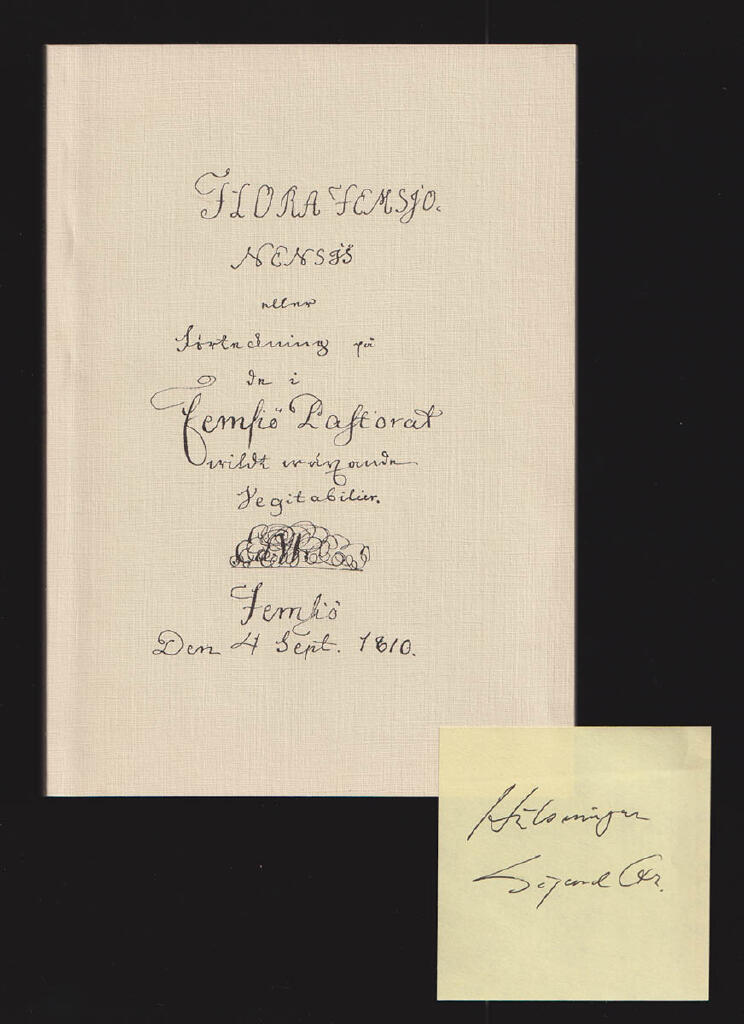 FLORA FEMSJO.
NENSIS
eller
Förteckning på
de i
Femsiö Pastorat
wildt wäxande
Vegitabilier.
Femsiö
Den 4 Sept. 1810.
Hälsningar